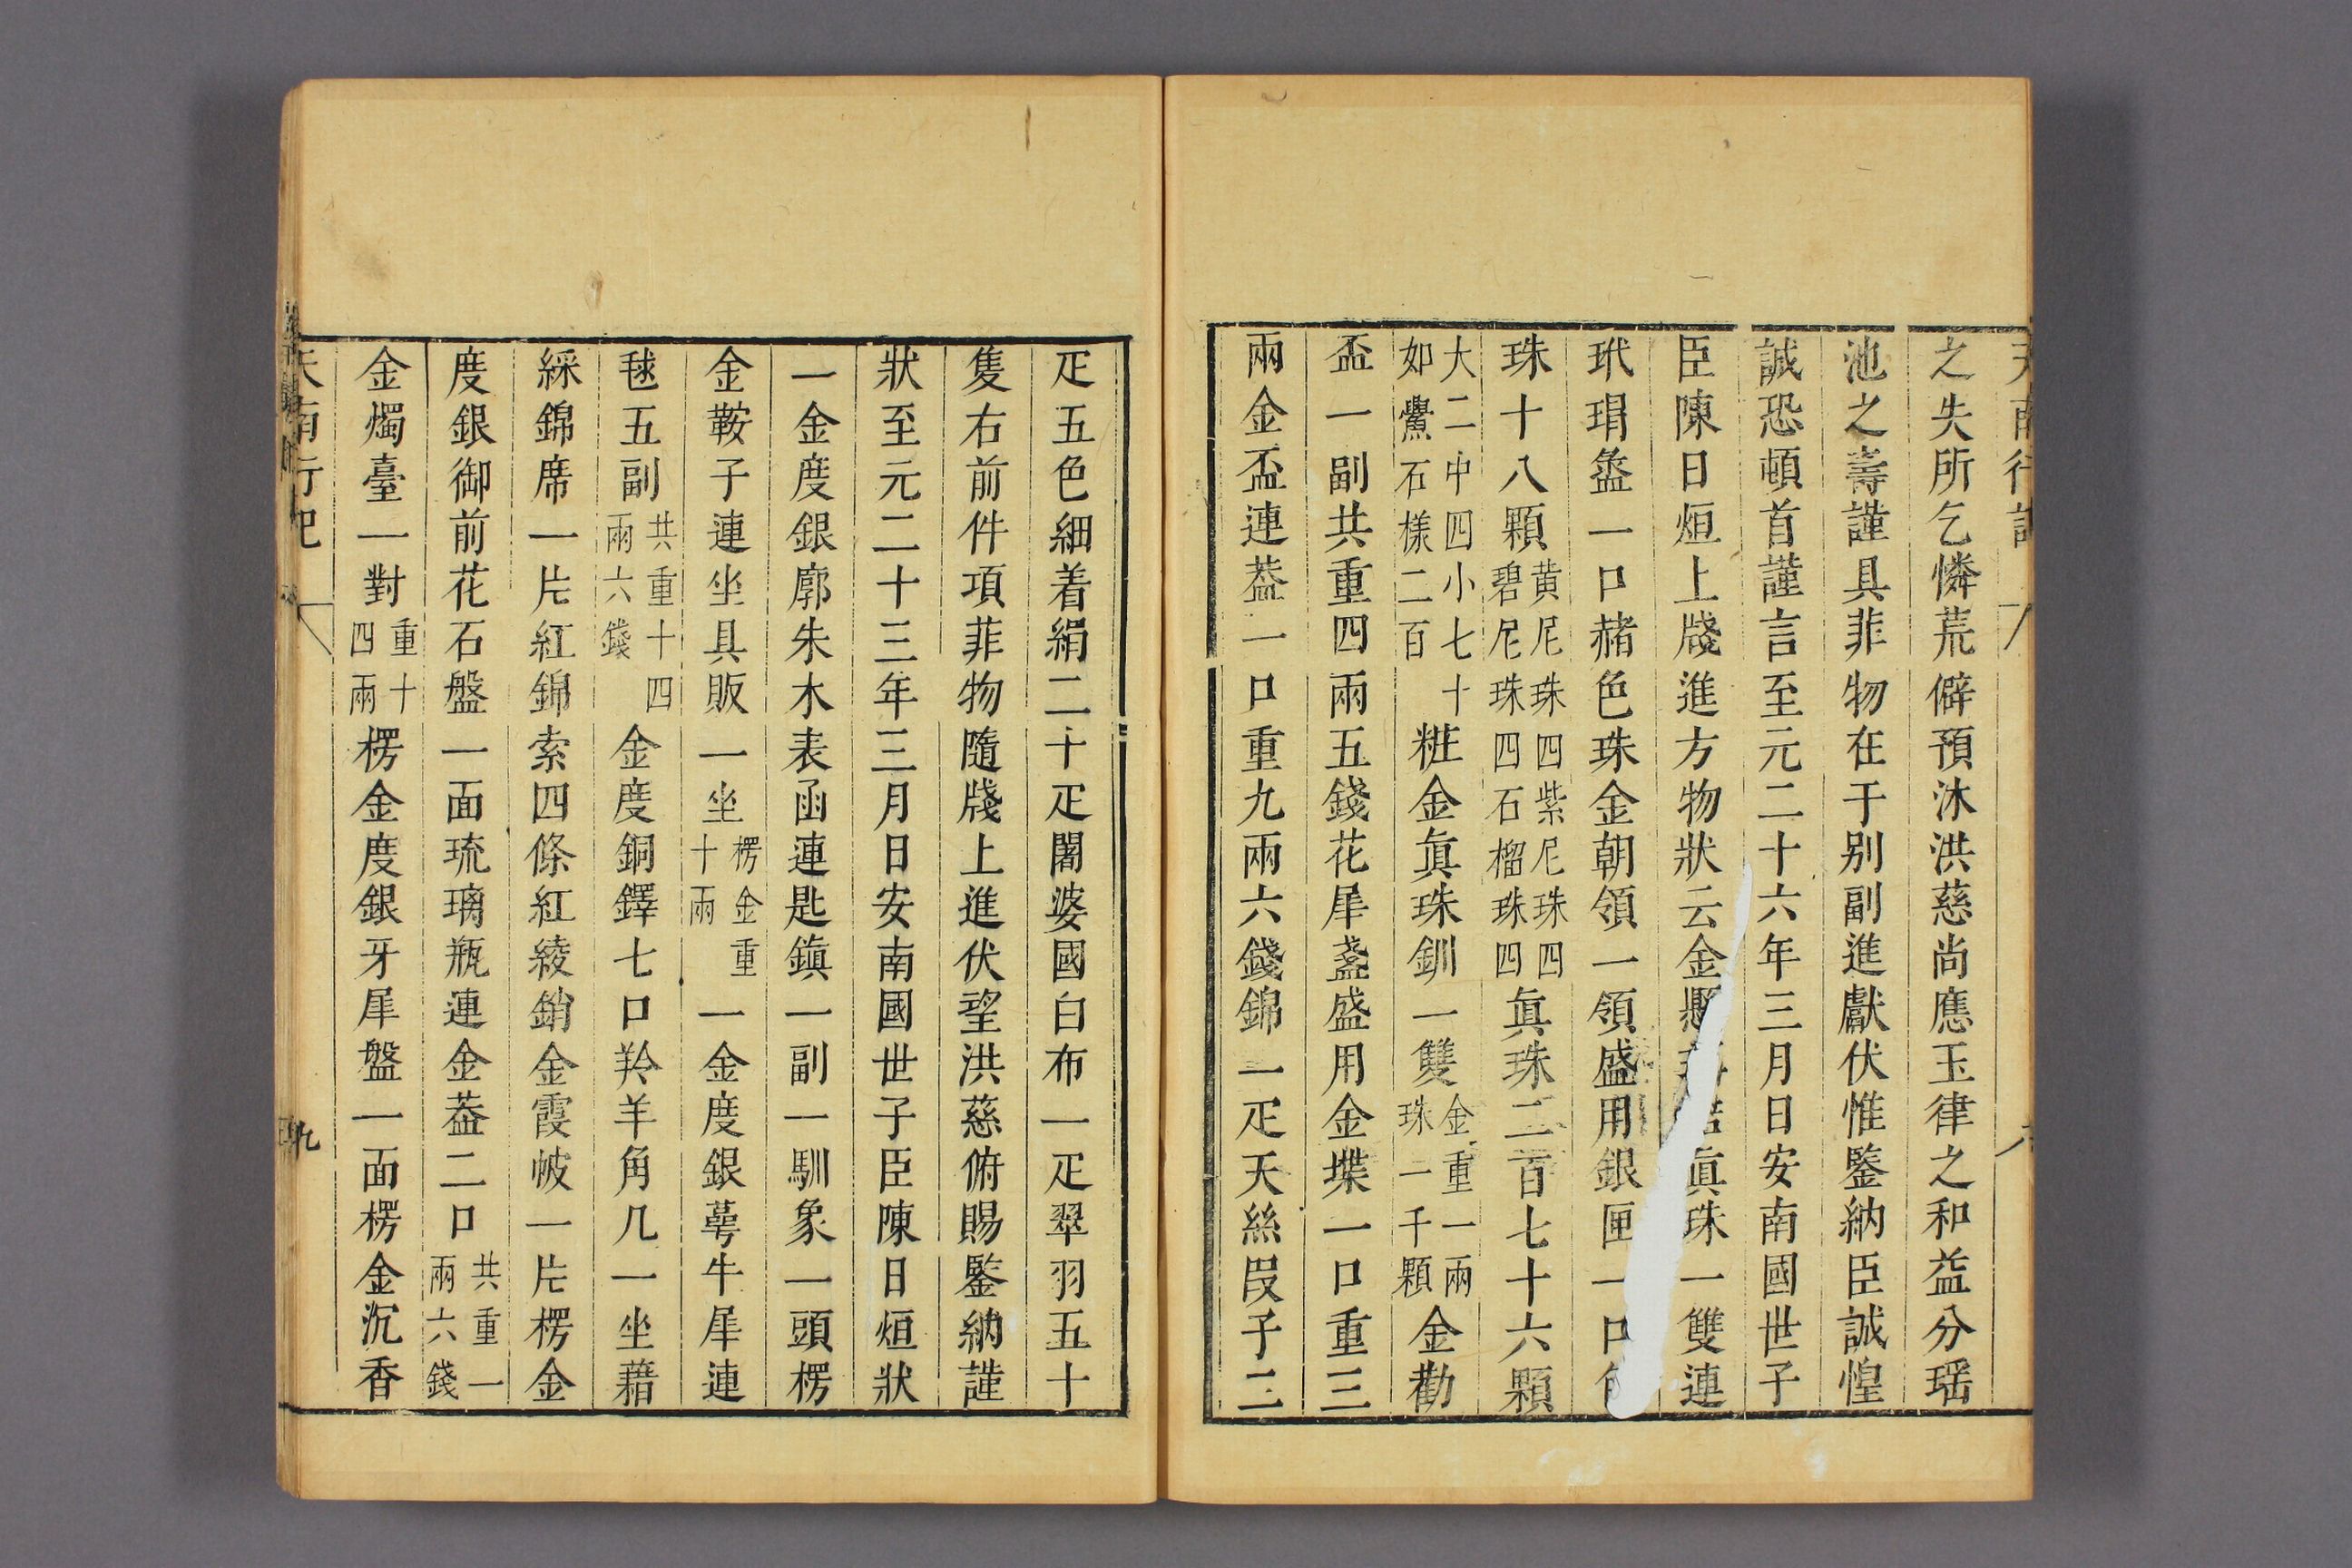 之失所乞憐荒僻預沐洪慈尚應玉律之和益分瑶
池之壽謹具菲物在于别副進獻伏惟鑒納臣誠惶
誠恐頓首謹言至元二十六年三月日安南國世子
臣陳日烜上牋進方物狀云金懸眞珠一雙連
玳瑁盝一口赭色珠金朝領一領盛用銀匣一口
珠十八顆黄尼珠四紫尼珠四碧尼珠四石榴珠四眞珠二百七十六顆
大二中四小七十如鱟石樣二百粧金眞珠釧一雙金重一兩珠一千顆金勸
盃一副共重四兩五錢花犀盞盛用金堞一口重三
兩金盃連葢一口重九兩六錢錦一疋天絲段子二
疋五色細着絹二十疋闍婆國白布一疋翠羽五十
隻右前件項菲物隨牋上進伏望洪慈俯賜鑒納謹
狀至元二十三年三月日安南國世子臣陳日烜狀
一金度銀廓朱木表函連匙鎮一副一馴象一頭楞
金鞍子連坐具販一坐楞金重十兩一金度銀蕚牛犀連
毬五副共重十四兩六錢金度銅鐸七口羚羊角几一坐藉
綵錦席一片紅錦索四條紅綾銷金霞帔一片楞金
度銀御前花石盤一面琉璃瓶連金葢二口共重一兩六錢
金燭臺一對重十四兩楞金度銀牙犀盤一面楞金沉香
天南行記
九